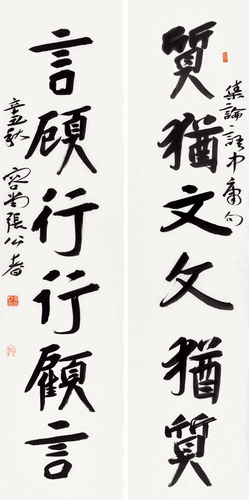 質猶文文猶質
集論語中庸句
言顧行行顧言
辛丑秋
容堂張公者